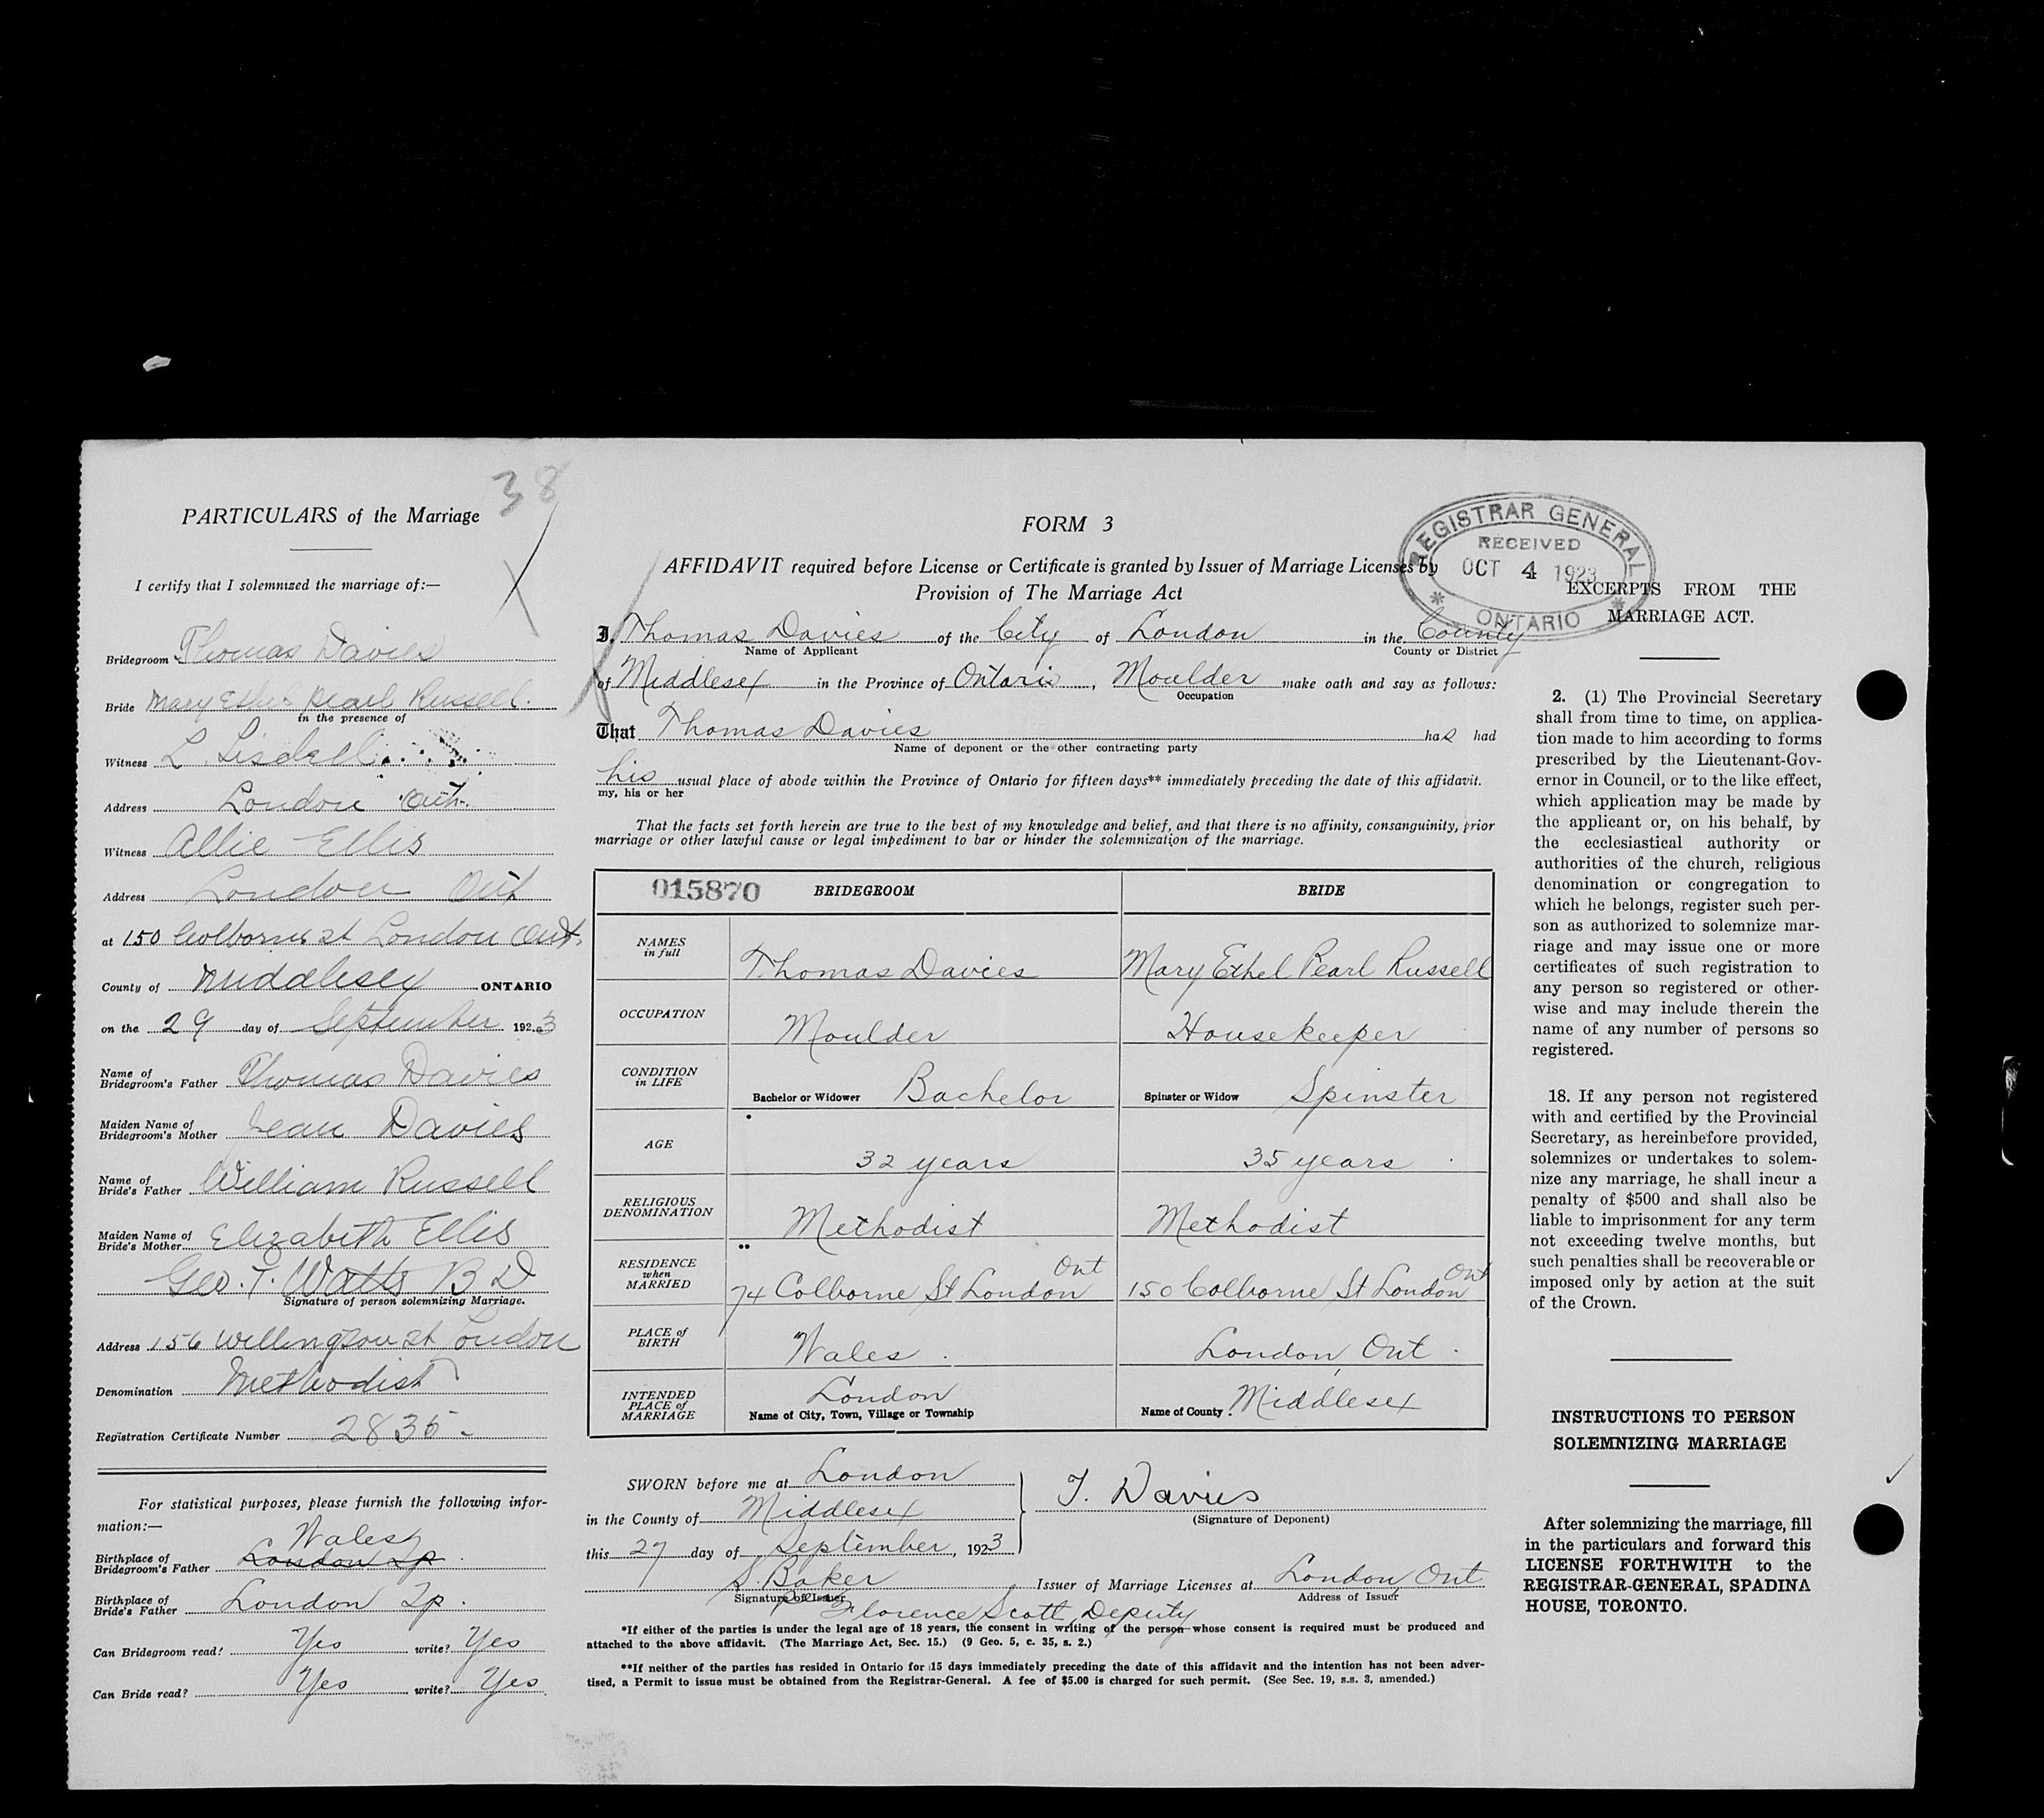 38
PARTICULARS of the Marriage
I certify that I solemnized the marriage of:—
Bridegroom Thomas Davies
Bride Mary Ethel Pearl Russell.
in the presence of
Witness L. Lisdell
Address London Ont.
Witness Allie Ellis
Address London Ont
at 150 Colborne st London Ont.
County of Middlesex ONTARIO
on the 29 day of September 1923
Name of
Bridegroom's Father Thomas Davies
Maiden Name of
Bridegroom's Mother Jean Davies
Name of
Bride's Father William Russell
Maiden Name of
Bride's Mother Elizabeth Ellis
Geo. T. Watts B D
Signature of person solemnizing Marriage.
Address 156 Wellington st London
Denomination Methodist
Registration Certificate Number 2835-
For statistical purposes, please furnish the following infor-
mation:—
Wales
Birthplace of
Bridegroom's Father London Tp.
Birthplace of
Bride's Father London Tp.
Can Bridegroom read? Yes write? Yes
Can Bride read? Yes write? Yes
FORM 3
AFFIDAVIT required before License or Certificate is granted by Issuer of Marriage Licenses by
Provision of The Marriage Act
I, Thomas Davies of the City of London in the County
Name of Applicant County or District
of Middlesex in the Province of Ontario, Moulder make oath and say as follows:
Occupation
That Thomas Davies has had
Name of deponent or the other contracting party
his usual place of abode within the Province of Ontario for fifteen days** immediately preceding the date of this affidavit.
my, his or her
That the facts set forth herein are true to the best of my knowledge and belief, and that there is no affinity, consanguinity, prior
marriage or other lawful cause or legal impediment to bar or hinder the solemnization of the marriage.
015870 BRIDEGROOM BRIDE
NAMES
in full
Thomas Davies Mary Ethel Pearl Russell
OCCUPATION
Moulder Housekeeper
CONDITION
in LIFE
Bachelor or Widower Bachelor Spinster or Widow Spinster
AGE
32 years 35 years
RELIGIOUS
DENOMINATION
Methodist Methodist
RESIDENCE
when
MARRIED
74 Colborne St London Ont 150 Colborne St London Ont
PLACE of
BIRTH
Wales. London, Ont.
INTENDED
PLACE of
MARRIAGE
London Middlesex
Name of City, Town, Village or Township Name of County
SWORN before me at London
in the County of Middlesex
this 27 day of September, 1923
T. Davies
(Signature of Deponent)
S. Baker Issuer of Marriage Licenses at London, Ont
Signature of Issuer Address of Issuer
Per Florence Scott, Deputy
*If either of the parties is under the legal age of 18 years, the consent in writing of the person whose consent is required must be produced and
attached to the above affidavit. (The Marriage Act, Sec. 15.) (9 Geo. 5, c. 35, s. 2.)
**If neither of the parties has resided in Ontario for 15 days immediately preceding the date of this affidavit and the intention has not been adver-
tised, a Permit to issue must be obtained from the Registrar-General. A fee of $5.00 is charged for such permit. (See Sec. 19, s.s. 3, amended.)
REGISTRAR GENERAL
RECEIVED
OCT 4 1923
* ONTARIO *
EXCERPTS FROM THE
MARRIAGE ACT.
2. (1) The Provincial Secretary
shall from time to time, on applica-
tion made to him according to forms
prescribed by the Lieutenant-Gov-
ernor in Council, or to the like effect,
which application may be made by
the applicant or, on his behalf, by
the ecclesiastical authority or
authorities of the church, religious
denomination or congregation to
which he belongs, register such per-
son as authorized to solemnize mar-
riage and may issue one or more
certificates of such registration to
any person so registered or other-
wise and may include therein the
name of any number of persons so
registered.
18. If any person not registered
with and certified by the Provincial
Secretary, as hereinbefore provided,
solemnizes or undertakes to solem-
nize any marriage, he shall incur a
penalty of $500 and shall also be
liable to imprisonment for any term
not exceeding twelve months, but
such penalties shall be recoverable or
imposed only by action at the suit
of the Crown.
INSTRUCTIONS TO PERSON
SOLEMNIZING MARRIAGE
After solemnizing the marriage, fill
in the particulars and forward this
LICENSE FORTHWITH to the
REGISTRAR-GENERAL, SPADINA
HOUSE, TORONTO.